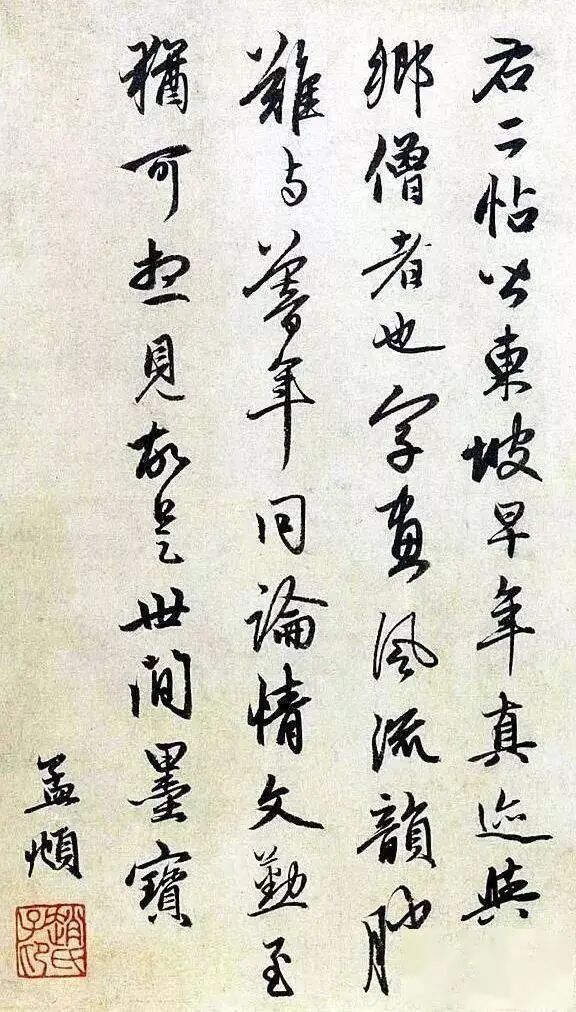 右二帖皆東坡早年真迹與
鄉僧者也字畫風流韻勝
難与暮年同論情文勤至
猶可想見故是世間墨寶
孟頫
趙氏子印